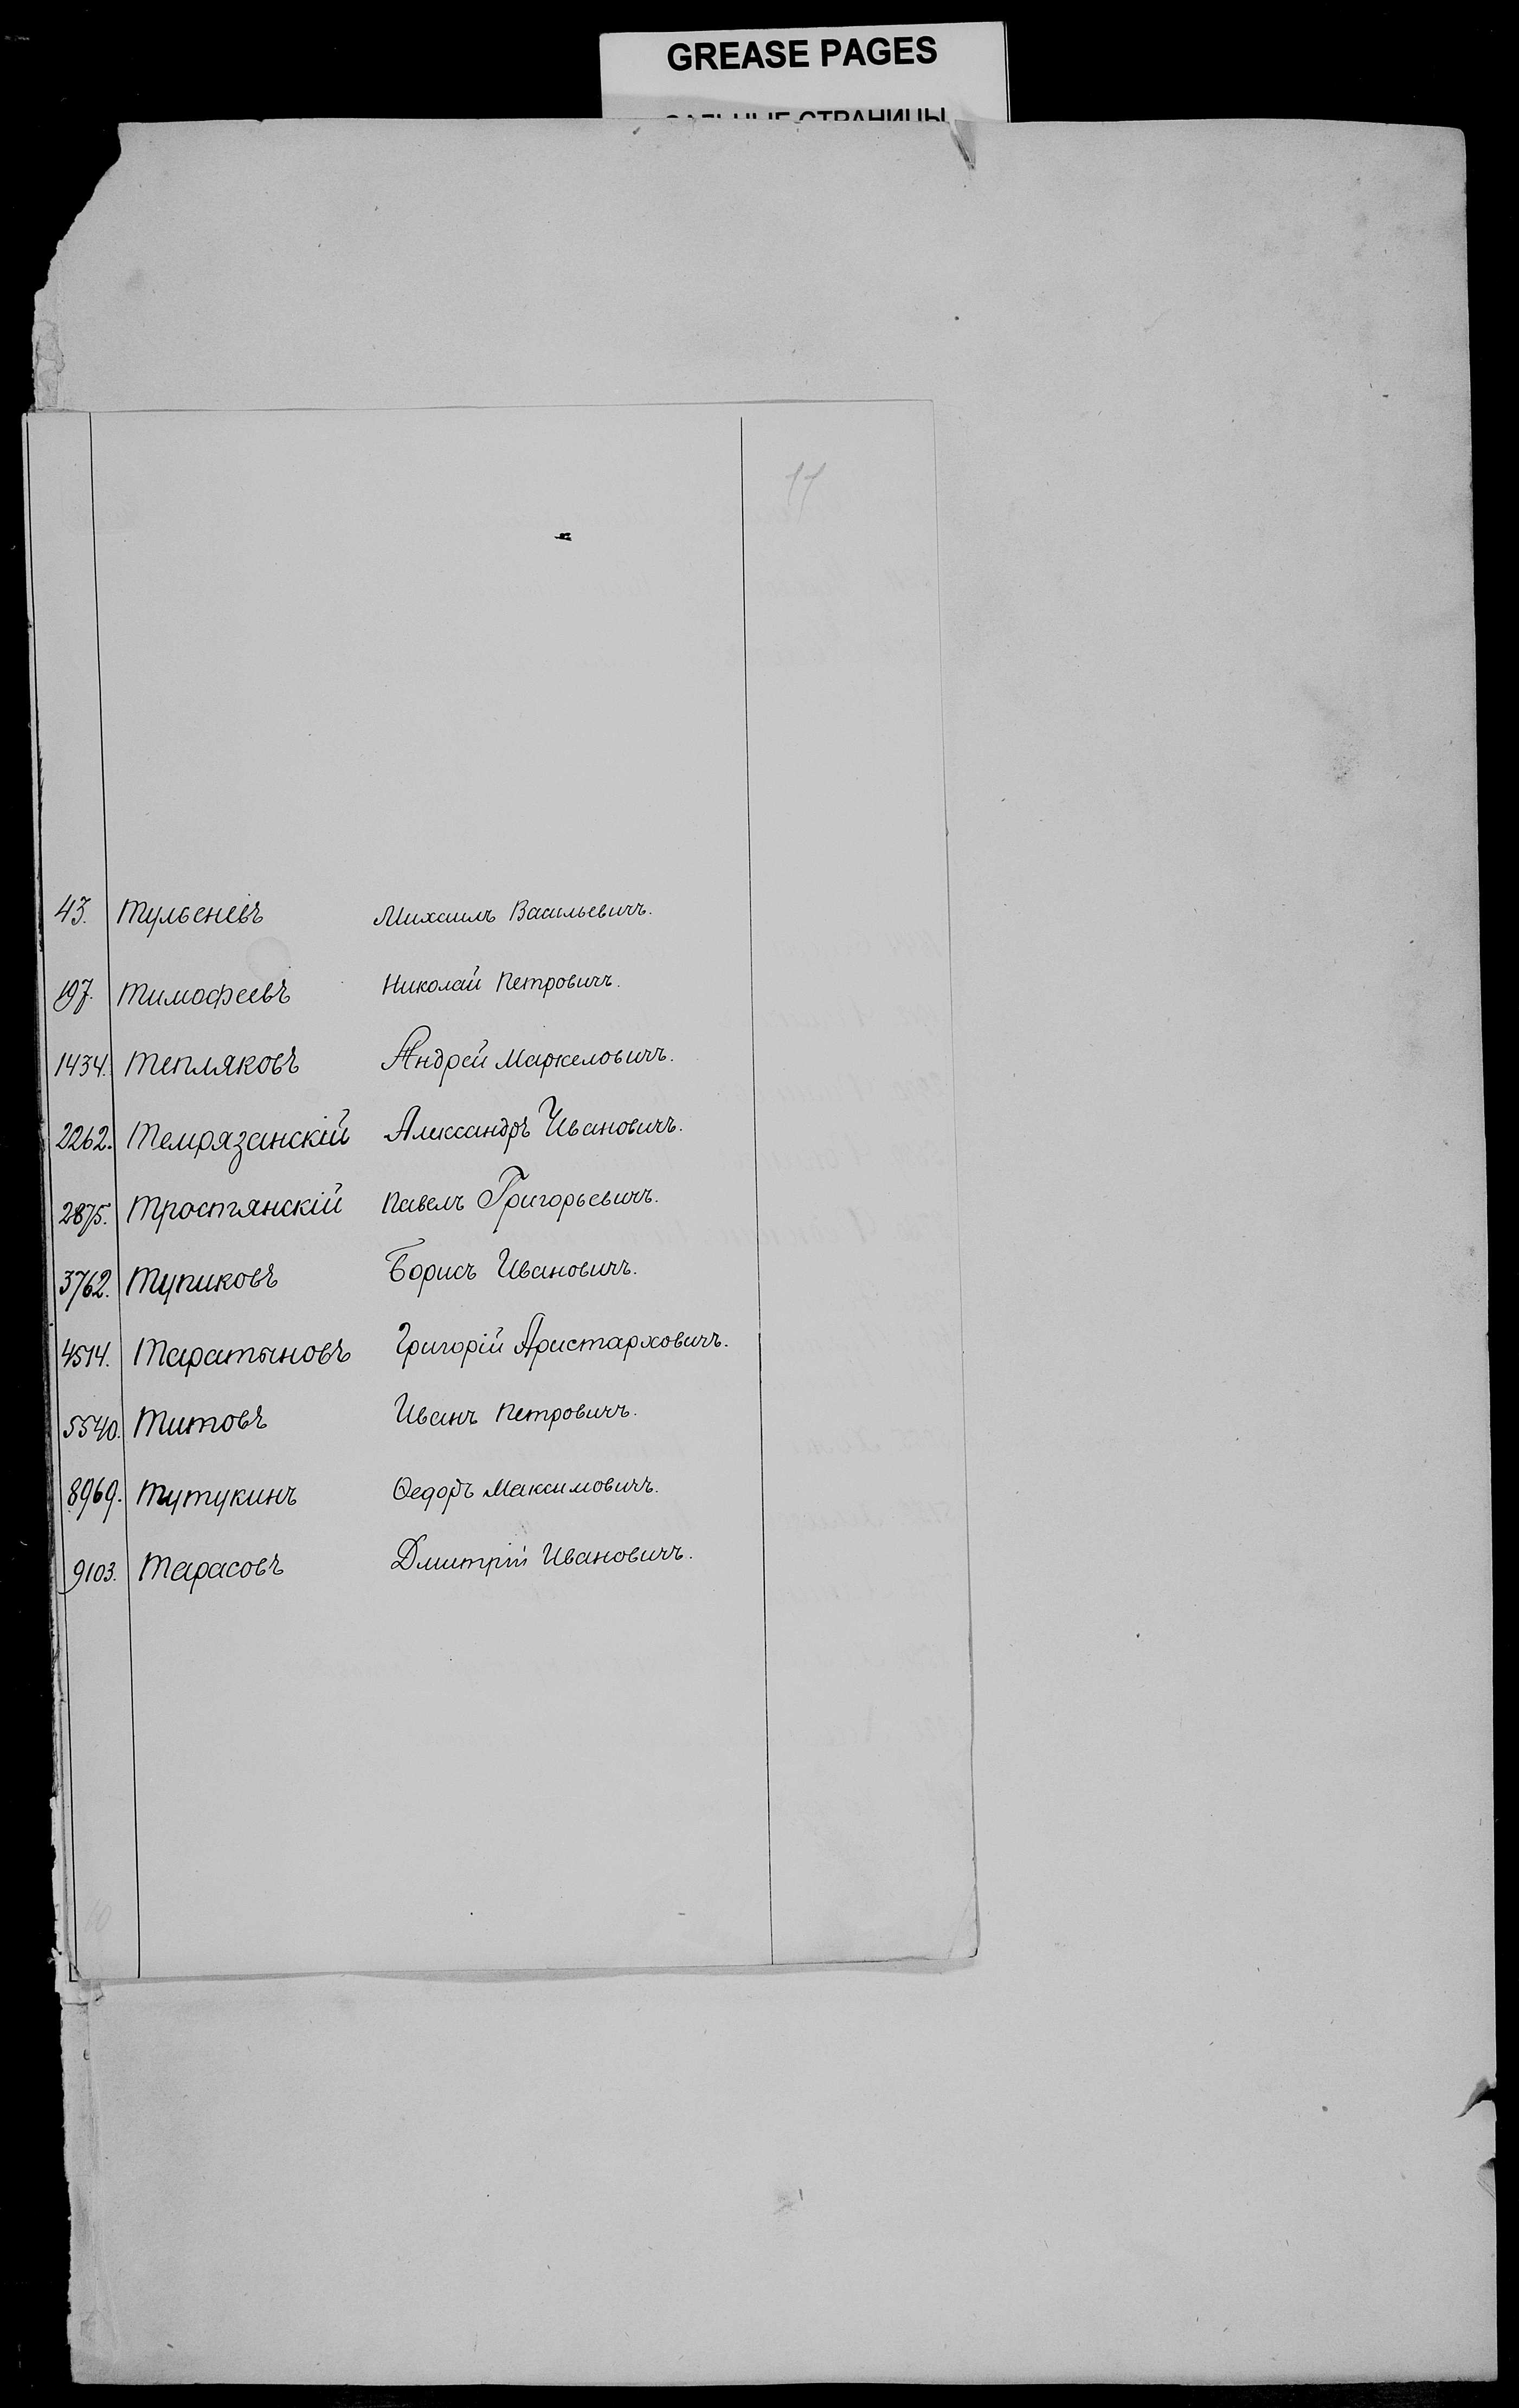 GREASE PAGES
САЛЬНЫЕ СТРАНИЦЫ
17
43. Тульеневъ Михаилъ Васильевичъ.
197. Тимофеевъ Николай Петровичъ.
1434. Тепляковъ Андрей Маркеловичъ.
2262. Темрязанскій Александръ Ивановичъ.
2875. Тростянскій Павелъ Григорьевичъ.
3762. Тупиковъ Борисъ Ивановичъ.
4514. Таратыновъ Григорій Аристарховичъ.
5540. Титовъ Иванъ Петровичъ.
8969. Тутукинъ Ѳедоръ Максимовичъ.
9103. Тарасовъ Дмитрій Ивановичъ.